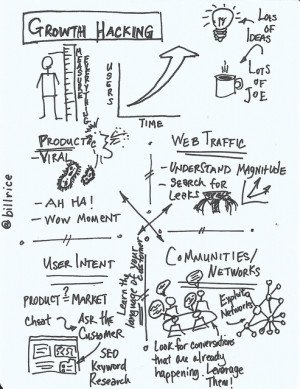 GROWTH HACKING
LOTS OF IDEAS
MEASURE EVERYTHING
USERS
TIME
LOTS OF JOE
PRODUCT
- VIRAL
- AH HA!
- WOW MOMENT
WEB TRAFFIC
- UNDERSTAND MAGNITUDE
- Search for Leaks
@billrice
Learn the language of your customer
USER INTENT
PRODUCT ? MARKET
Cheat
Ask the Customer
SEO
Keyword Research
COMMUNITIES/
NETWORKS
Exploiting Networks
Look for conversations
that are already
happening. Leverage
Them!